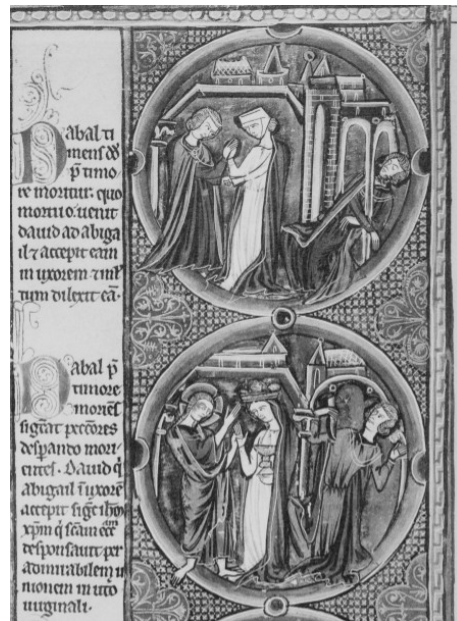 Nabal ti
mens dd
p̄ timo
re moritur. quo
mortuo. uenit
dauid ad abiga
il ⁊ accepit eam
in uxorem ⁊ ml̄
tum dilexit eā.
Nabal p̄
timore
moriēs
sigc̄at pecc̄ores
despando mori
entes. Dauid q̄
abigail ī uxorē
accepit sigc̄ ih̄m
xp̄m q̄ sc̄am ecc̄am
desponsauit per
admirabilem u
nionem in utō
uirginali.